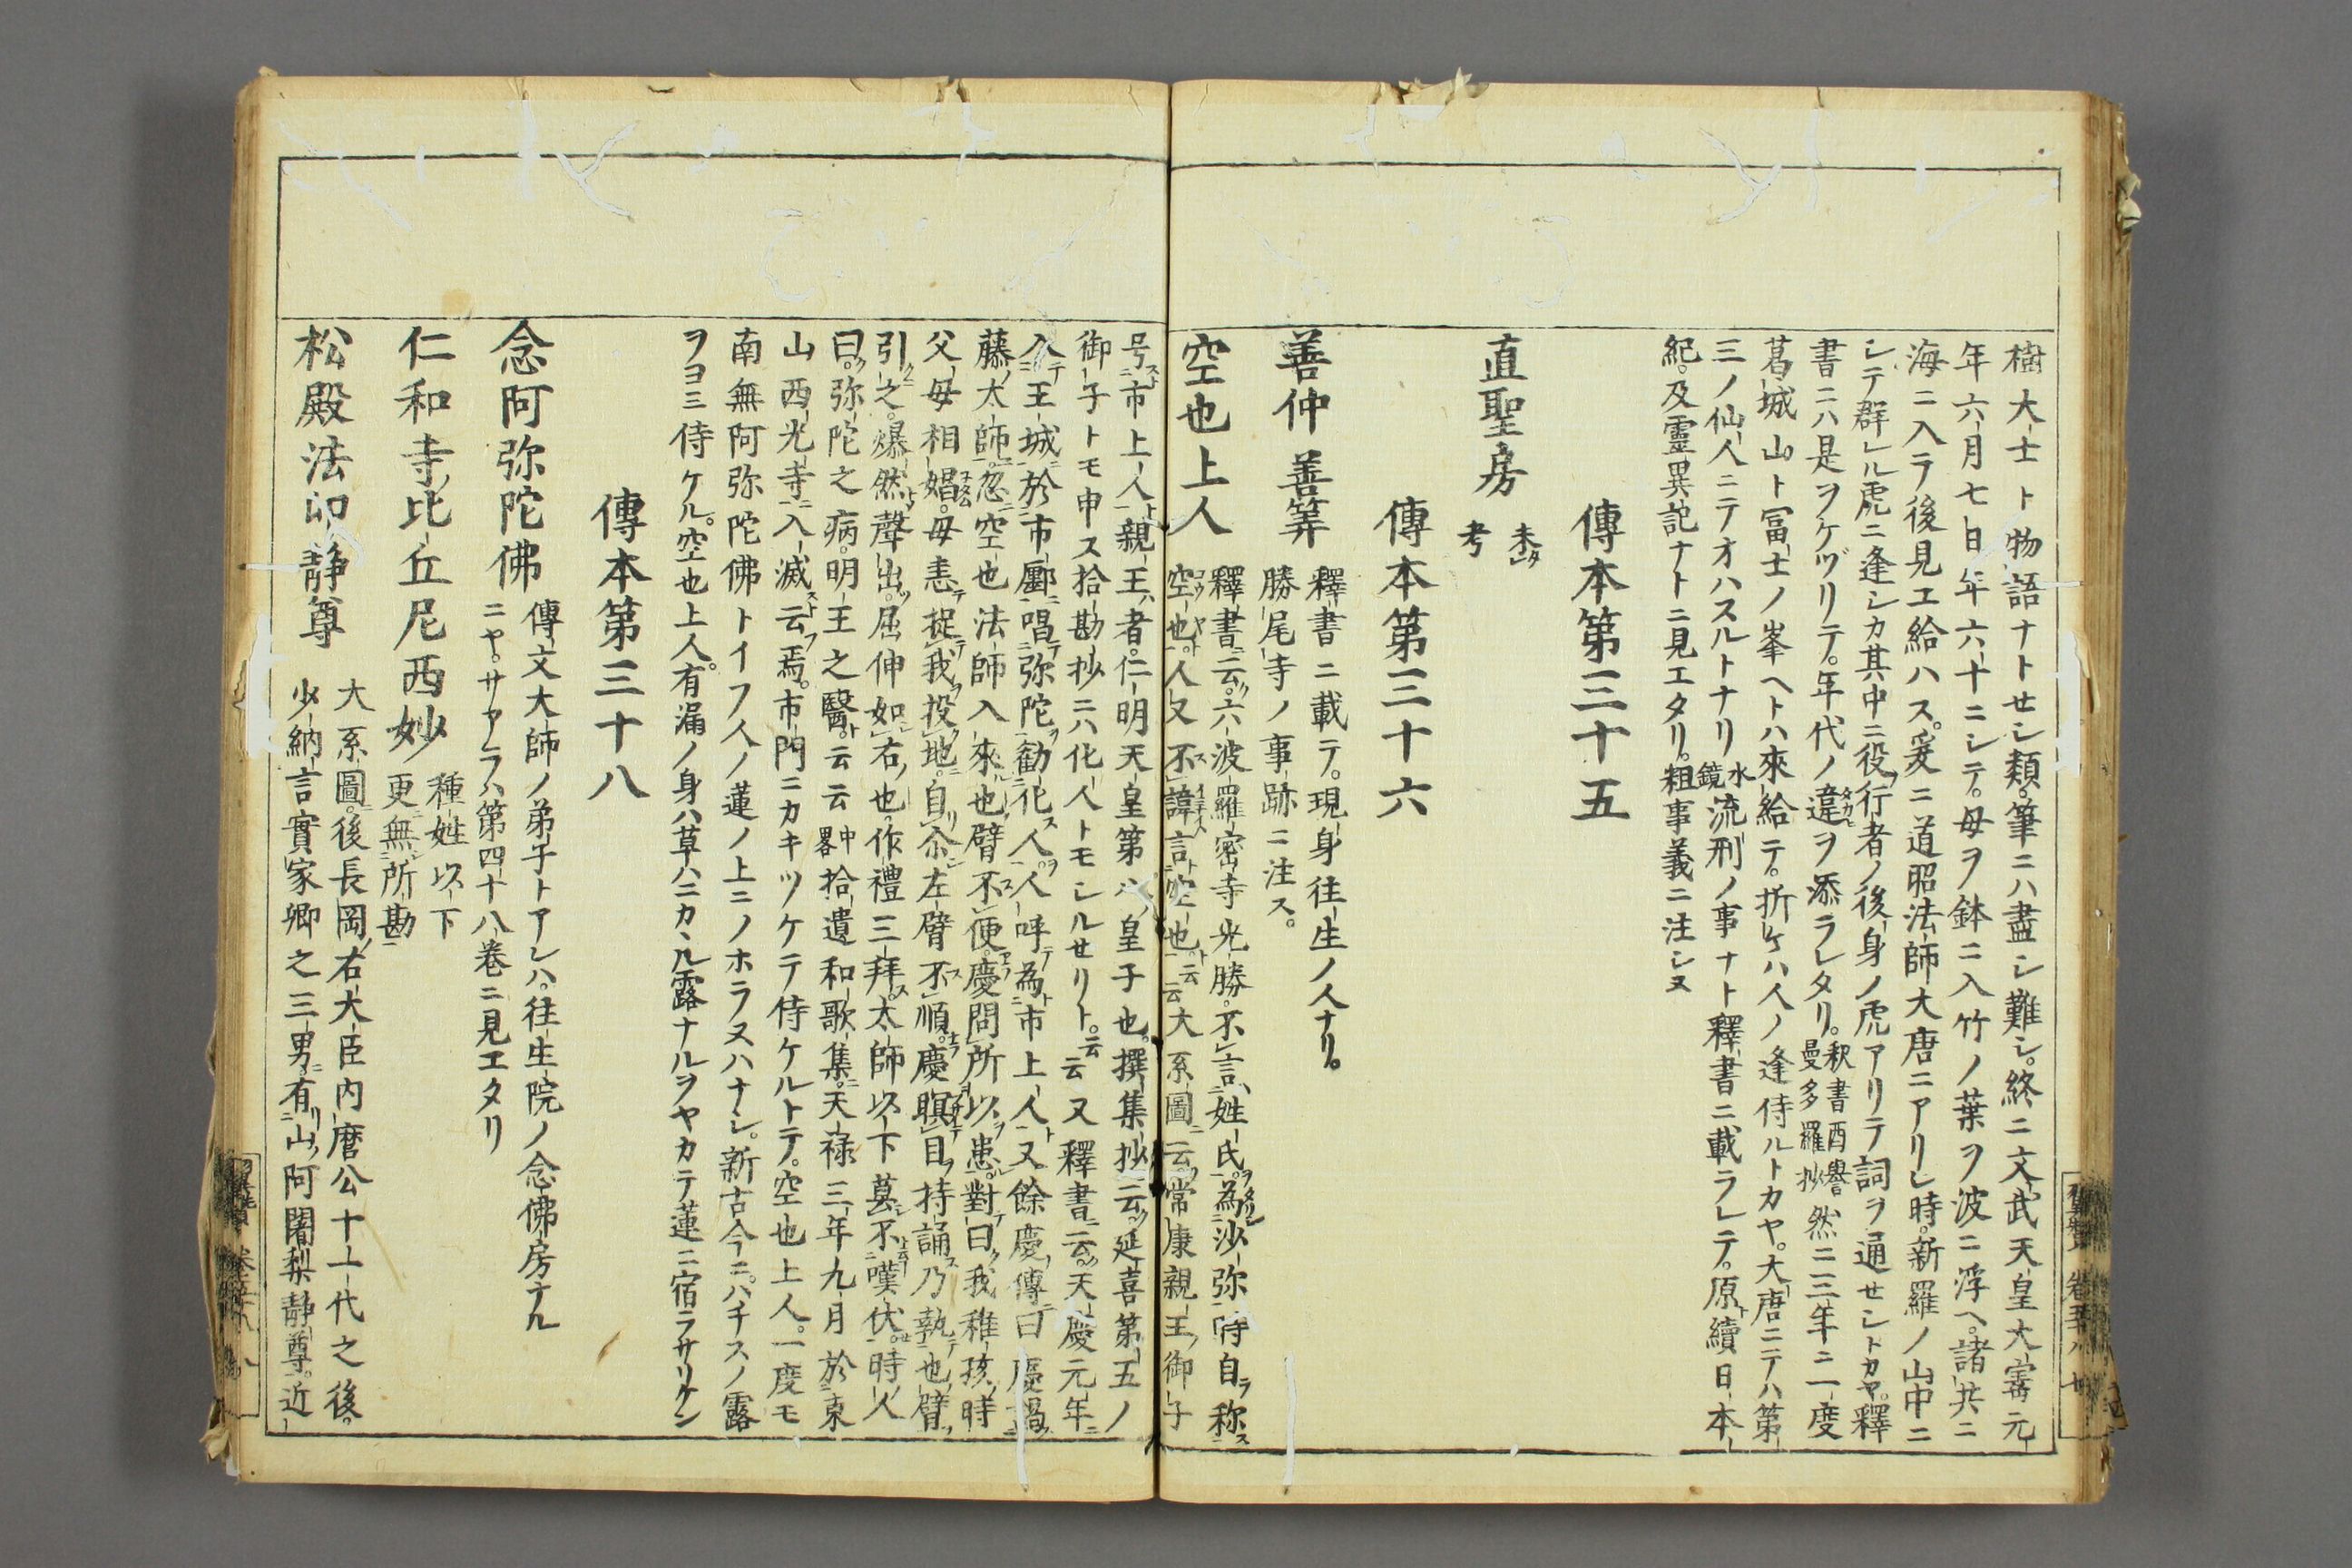 樹大士ト物語ナトセシ類。筆ニハ盡シ難シ。終ニ文武天皇大寳元
年六月七日年六十ニシテ。母ヲ鉢ニ入竹ノ葉ヲ波ニ浮ヘ。諸共ニ
海ニ入テ後見エ給ハス。爰ニ道昭法師大唐ニアリシ時。新羅ノ山中ニ
シテ群レル虎ニ逢シカ其中ニ役行者ノ後身ノ虎アリテ詞ヲ通セシトカヤ。釋
書ニハ是ヲケヅリテ。年代ノ違ヲ添ラレタリ。釈書酉譽曼多羅抄然ニ三年ニ一度
葛城山ト冨士ノ峯ヘトハ來給テ。折ケハ人ノ逢侍ルトカヤ。大唐ニテハ第
三ノ仙人ニテオハスルトナリ水鏡流刑ノ事ナト釋書ニ載ラレテ。原續日本
紀。及靈異記ナトニ見エタリ。粗事義ニ注シヌ
傳本第三十五
直聖房 未タ考
傳本第三十六
善仲 善筭 釋書ニ載テ。現身往生ノ人ナリ。
勝尾寺ノ事跡ニ注ス。
空也上人 釋書云。六波羅密寺光勝。不言姓氏。為沙弥時自称
空也。人又不諱言空也云云大系圖云常康親王御子
号市上人親王者。仁明天皇第八皇子也。撰集抄云延喜第五ノ
御子トモ申ス拾勘抄ニハ化人トモシルセリト。云云又釋書云。天慶元年
入王城於市鄽唱弥陀勸化人。人呼為市上人又餘慶傳曰慶謁
藤大師。忽空也法師入來也臂不便。慶問所以患。對曰我稚孩時
父母相娼。母恚捉我投地。自尒左臂不順。慶瞑目持誦乃執也臂
引之。爆然聲出。屈伸如右也。作禮三拜。太師以下莫不嘆伏。時人
曰。弥陀之病。明王之醫。云云中畧拾遺和歌集。天禄三年九月於東
山西光寺入滅云焉。市門ニカキツケテ侍ケルトテ。空也上人。一度モ
南無阿弥陀佛トイフ人ノ蓮ノ上ニノホラヌハナシ。新古今ニ。ハチスノ露
ヲヨミ侍ケル。空也上人。有漏ノ身ハ草ハニカヽル露ナルヲヤカテ蓮ニ宿ラサリケン
傳本第三十八
念阿弥陀佛 傳文大師ノ弟子トアレハ。往生院ノ念佛房ナル
ニヤ。サアラハ第四十八巻ニ見エタリ
仁和寺比丘尼西妙 種姓以下
更無所勘
松殿法印静尊 大系圖。後長岡右大臣内麿公十一代之後。
少納言實家卿之三男。有山阿闍梨静尊。近